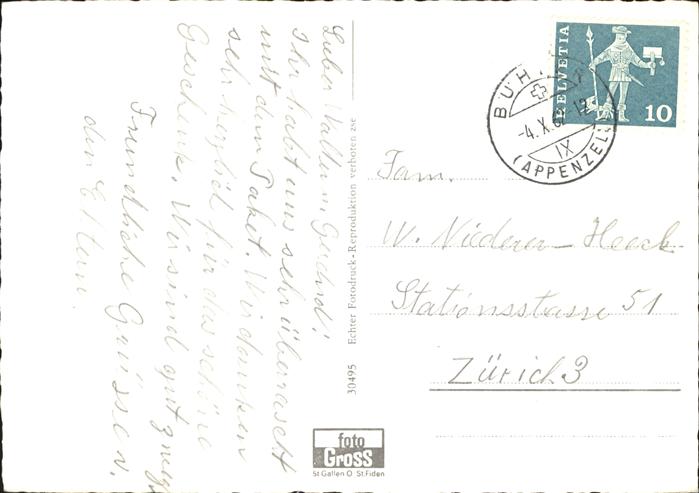 Lieber Walter u. Gerhrd!
Ihr habt uns sehr überrascht
mit dem Paket. Wir danken
sehr herzlich für das schöne
Geschenk. Wir sind gut
Freundliche Grüsse v.
den Eltern.
Echter Fotodruck - Reproduktion verboten zse
30495
foto
Gross
St Gallen O St. Fiden
HELVETIA
10
BÜH
-4.X.6 -12
IX
(APPENZELL)
Fam.
W. Niederer-Heeck
Stationsstasse 51
Zürich 3